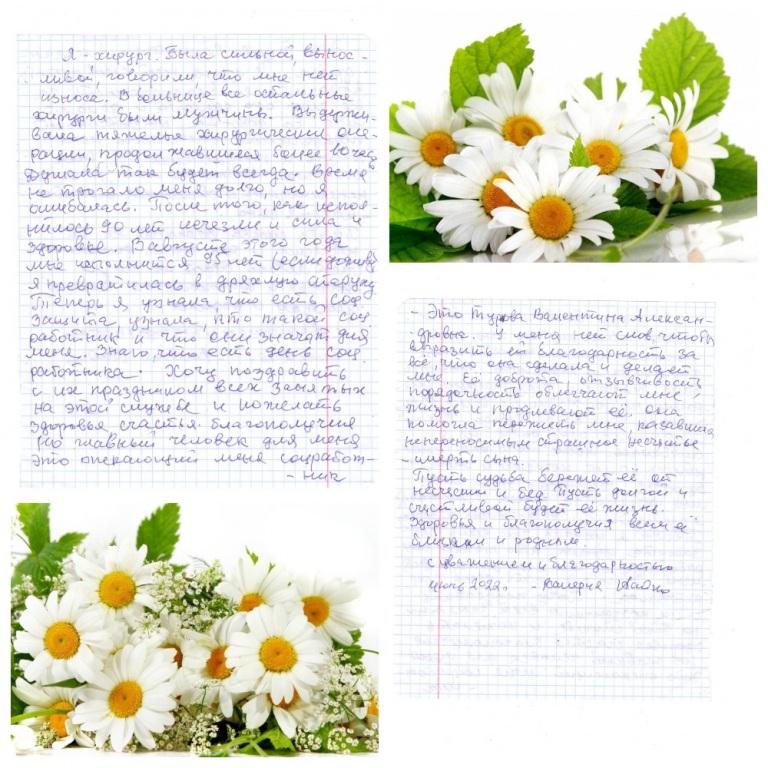 Я - хирург. Была сильной, вынос-
ливой, говорили что мне нет
износа. В больнице все остальные
хирурги были мужчины. Выдержи-
вала тяжелые хирургические опе-
рации, продолжавшиеся более 10 час.
Думала так будет всегда. Время
не трогало меня долго, но я
ошибалась. После того, как испол-
нилось 90 лет, исчезли и сила и
здоровье. В августе этого года
мне исполнится 95 лет (если доживу)
я превратилась в дряхлую старуху
Теперь я узнала, что есть соц
защита, узнала, кто такой соц
работник и что они значат для
меня. Знаю, что есть день соц
работника. Хочу поздравить
с их праздником всех занятых
на этой службе и пожелать
здоровья счастья благополучия
Но главный человек для меня
это опекающий меня соцработ-
- ник
- Это Турова Валентина Алексан-
дровна. У меня нет слов, чтобы
выразить ей благодарность за
всё, что она сделала и делает
мне. Её доброта, отзывчивость
порядочность облегчают мне
жизнь и продлевают её. Она
помогла пережить мне, казавшееся
непереносимым страшное несчастье
- смерть сына.
Пусть судьба бережет её от
несчастий и бед. Пусть долгой и
счастливой будет её жизнь.
Здоровья и благополучия всем её
близким и родным
с уважением и благодарностью
июнь 2022г. - Валерия